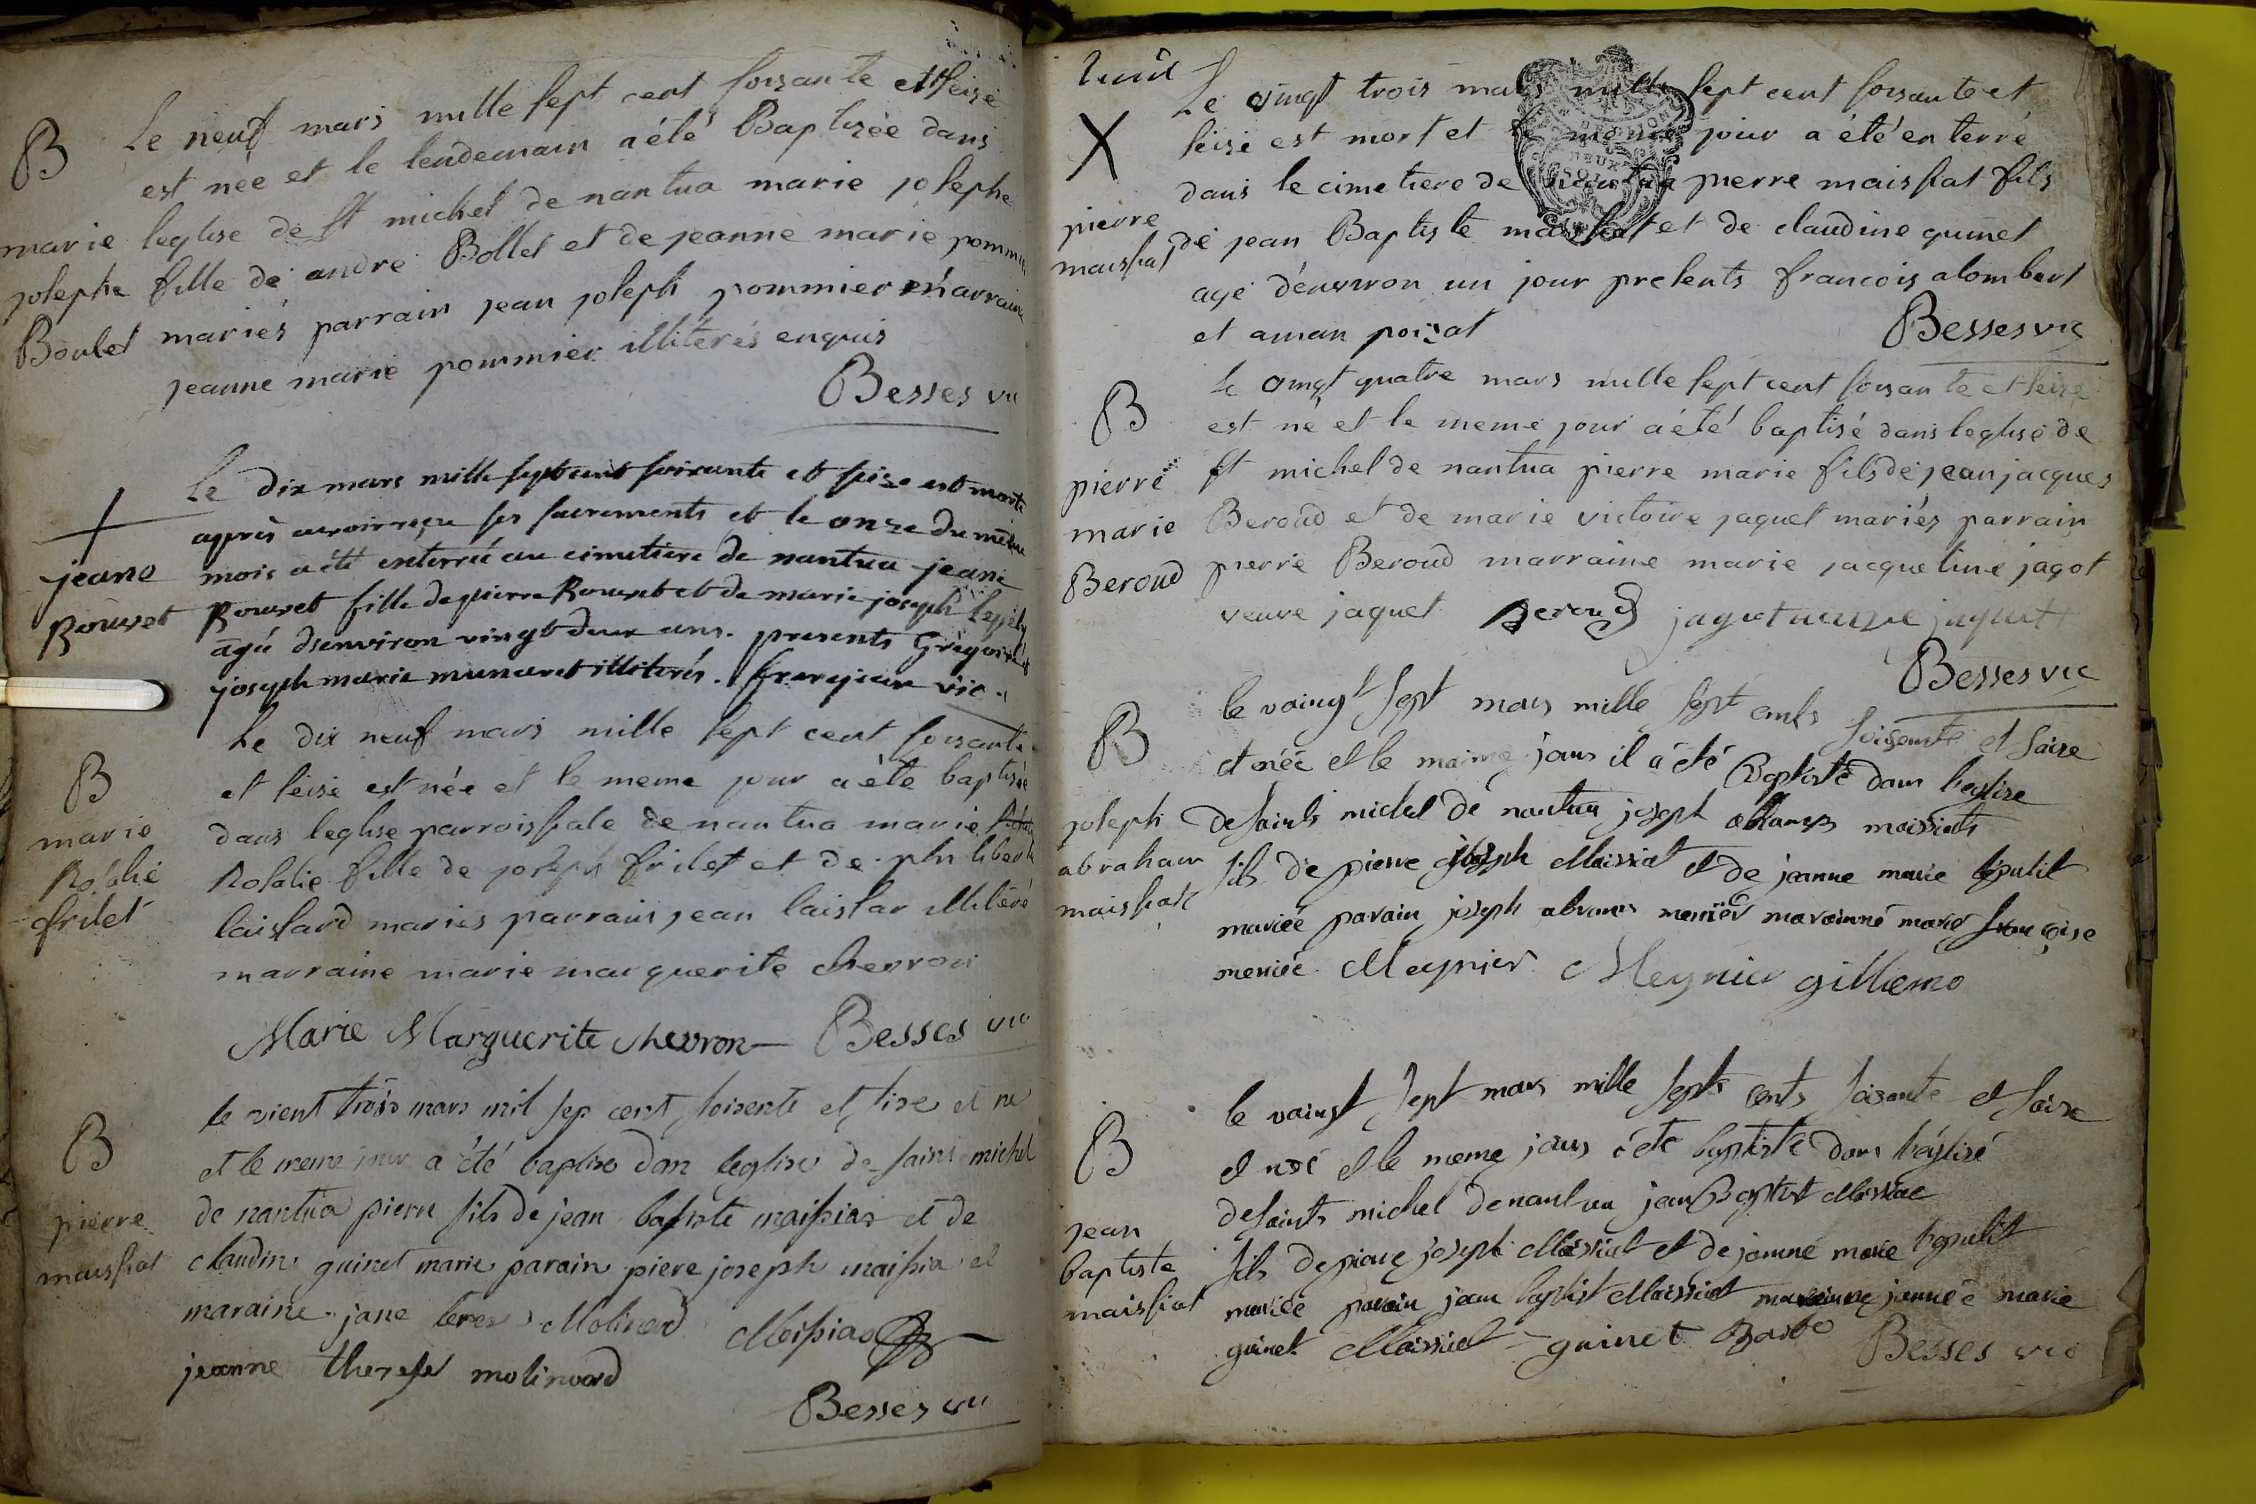 B
marie
josephe
Boulet
Le neuf mars mille sept cent soixante et seize
est née et le lendemain a été Baptisée dans
leglise de st michel de nantua marie josephe
fille de andré Bollet et de jeanne marie pommier
mariés parrain jean joseph pommier marraine
jeanne marie pommier illiterés enquis
Besses vic
jeane
Rouvet
Le dix mars mille sept cent soixante et seize est morte
après avoir reçu ses sacrements et le onze du même
mois a été enterrée au cimetiere de nantua jeane
Rouvet fille de pierre Rouvet et de marie joseph
agée d'environ vingt deux ans. presents Gregoire et
joseph marie munaret illiterés. frerejean vic.
B
marie
Rosalie
frilet
Le dix neuf mars mille sept cent soixante
et seise est née et le meme jour a été baptisée
dans leglise parroissiale de nantua marie
Rosalie fille de joseph frilet et de
laissard mariés parrain jean laissar illiteré
marraine marie marguerite chevron
Marie Marguerite chevron Besses vic
B
pierre
maissiat
le vient trois mars mil sep cent soisente et sise et ne
et le meme jour a été baptise dan leglise de saint michel
de nantua pierre fils de jean batiste maissiat et de
claudine guinet marie parain piere joseph maissia et
maraine jane terese Molinard Maissiat
jeanne therese molinard
Besses vic
X
pierre
maissiat
Le vingt trois mars mille sept cent soixante et
seize est mort et le meme jour a été enterré
dans le cimetiere de nantua pierre maissiat fils
de jean Baptiste maissiat et de claudine guinet
agé d'environ un jour presents francois alombert
et aman poizat
Besses vic
B
pierre
marie
Beroud
Le vingt quatre mars mille sept cent soixante et seize
est né et le meme jour a été baptisé dans leglise de
st michel de nantua pierre marie fils de jean jacques
Beroud et de marie victoire jaquet mariés parrain
pierre Beroud marraine marie jacqueline jagot
veuve jaquet Beroud jagot veuve jaquet
Besses vic
B
joseph
abraham
maissiat
le vaingt sept mars mille sept cents soisante et saise
et néé et le maime jour il a été Baptisté dans leglise
de saints michel de nantua joseph abrams maissiat
fils de pierre joseph Maissiat et de jeanne marie
mariéé parain joseph abrams menier maraine marie françoise
meniéé Meynier Meynier gillieme
B
jean
baptiste
maissiat
le vaingt sept mars mille septs cents soisante et saise
et néé et le meme jour été baptisté dans léglisé
de saints michel de nantua jean Baptist Maissiat
fils de piere joseph Maissiat et de jeanne marie
mariéé parain jean baptist Maissiat maraine jeanneé marie
guinet Maissiat guinet Besses vic